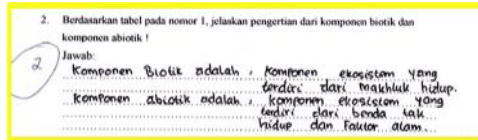 2. Berdasarkan tabel pada nomor 1, jelaskan pengertian dari komponen biotik dan
komponen abiotik !
2
Jawab:
Komponen Biotik adalah , komponen ekosistem yang
terdiri dari makhluk hidup.
Komponen abiotik adalah , komponen ekosistem yang
terdiri dari benda tak
hidup dan Faktor alam.